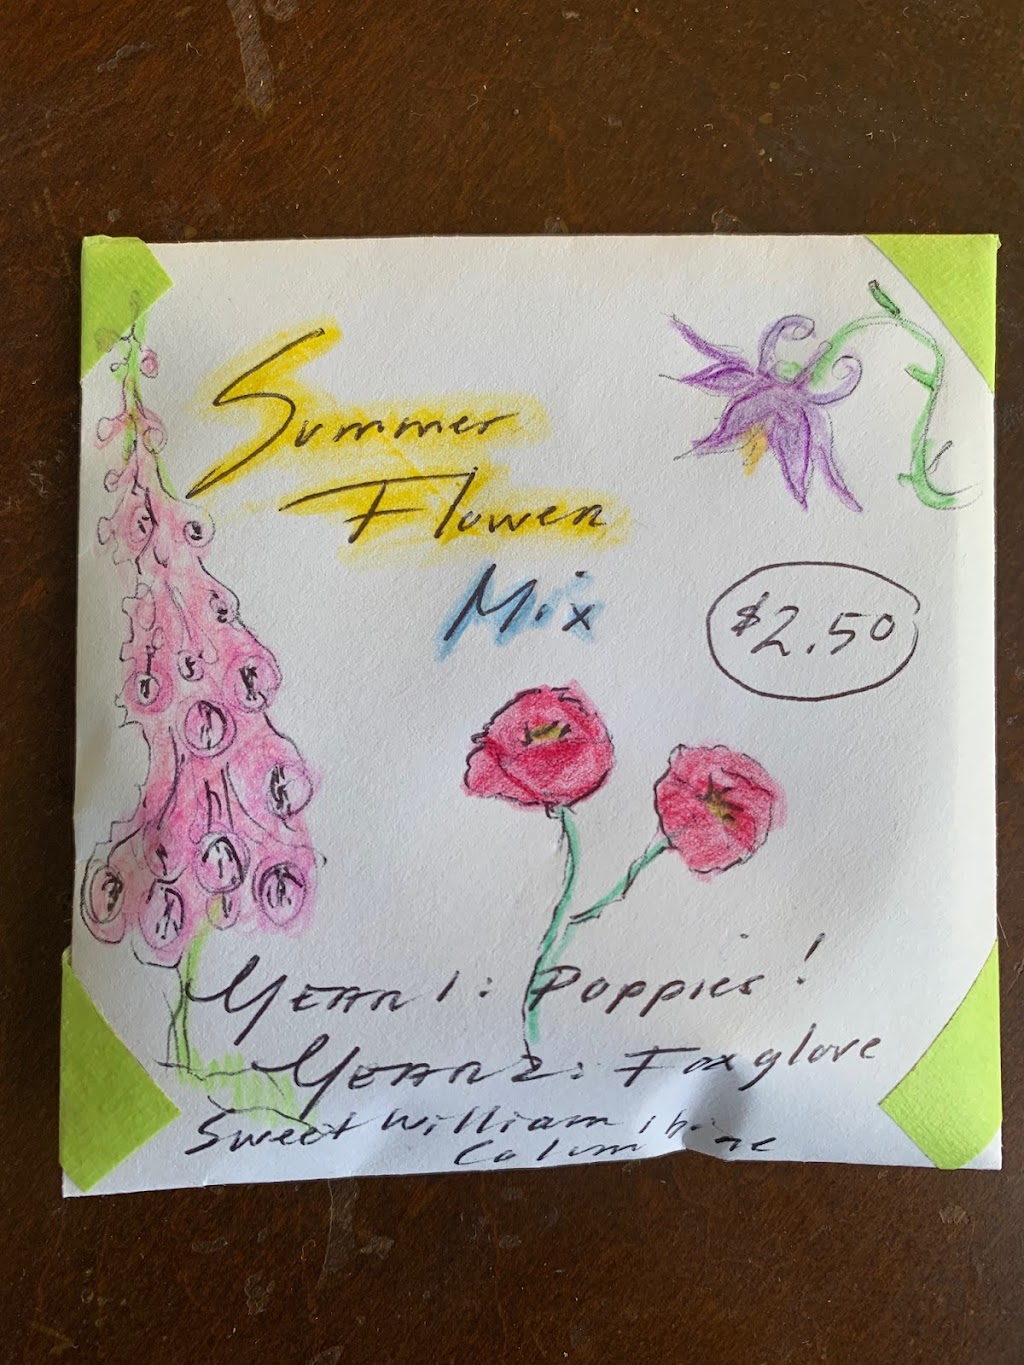 Summer
Flower
Mix
$2.50
Year 1: Poppies!
Year 2: Foxglove
Sweet William
Columbine